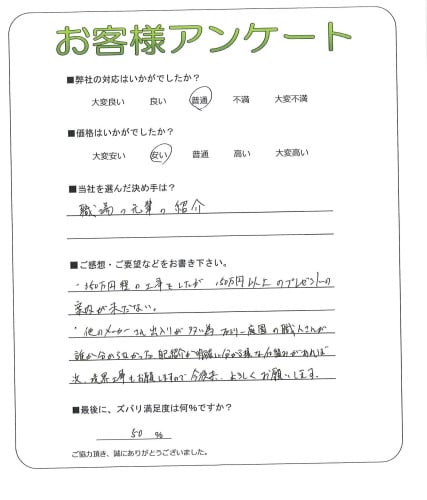 お客様アンケート
■弊社の対応はいかがでしたか？
大変良い 良い 普通 不満 大変不満
■価格はいかがでしたか？
大変安い 安い 普通 高い 大変高い
■当社を選んだ決め手は？
職場の先輩の紹介
■ご感想・ご要望などをお書き下さい。
・350万円程の工事をしたが 150万円以上のプレゼントの
案内が来ない。
・他のメーカーさん出入りが多い為 ファミリー庭園の職人さんが
誰か分からなかった。 紹介が明確に分かる様な仕組みがあれば
次、外界工事もお願いしますので今後共、よろしくお願いします。
■最後に、ズバリ満足度は何％ですか？
50 %
ご協力頂き、誠にありがとうございました。